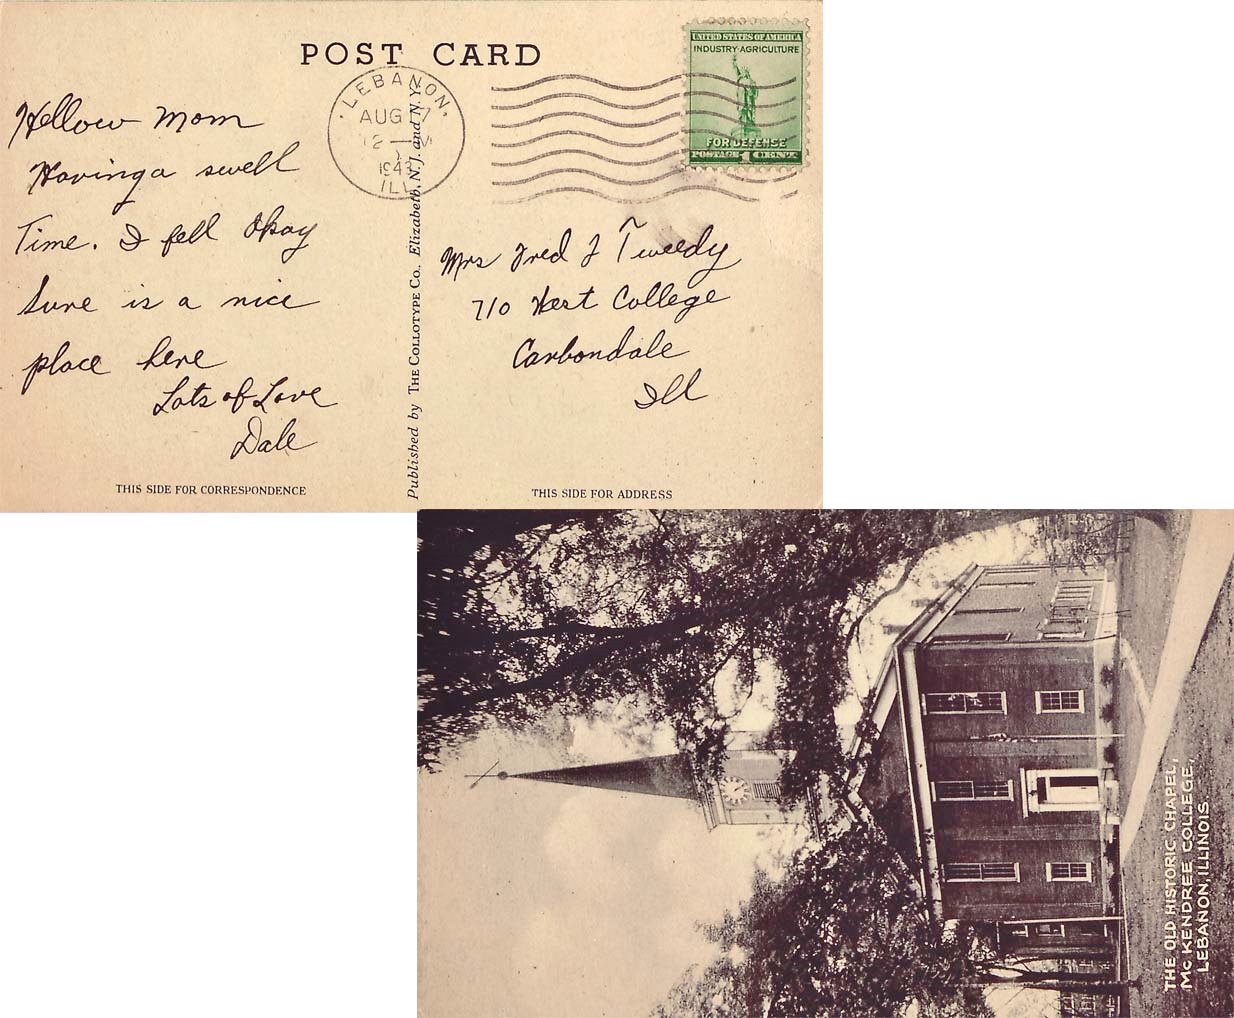 POST CARD
LEBANON,
AUG 7
12 — M
1943
ILL.
UNITED STATES OF AMERICA
INDUSTRY·AGRICULTURE
FOR DEFENSE
POSTAGE 1 CENT
Hellow Mom
Having a swell
Time. I fell Okay
Sure is a nice
place here
Lots of Love
Dale
Published by THE COLLOTYPE CO., Elizabeth, N.J. and N.Y.
Mrs Fred J Tweedy
710 West College
Carbondale
Ill
THIS SIDE FOR CORRESPONDENCE
THIS SIDE FOR ADDRESS
THE OLD HISTORIC CHAPEL,
MCKENDREE COLLEGE,
LEBANON, ILLINOIS.